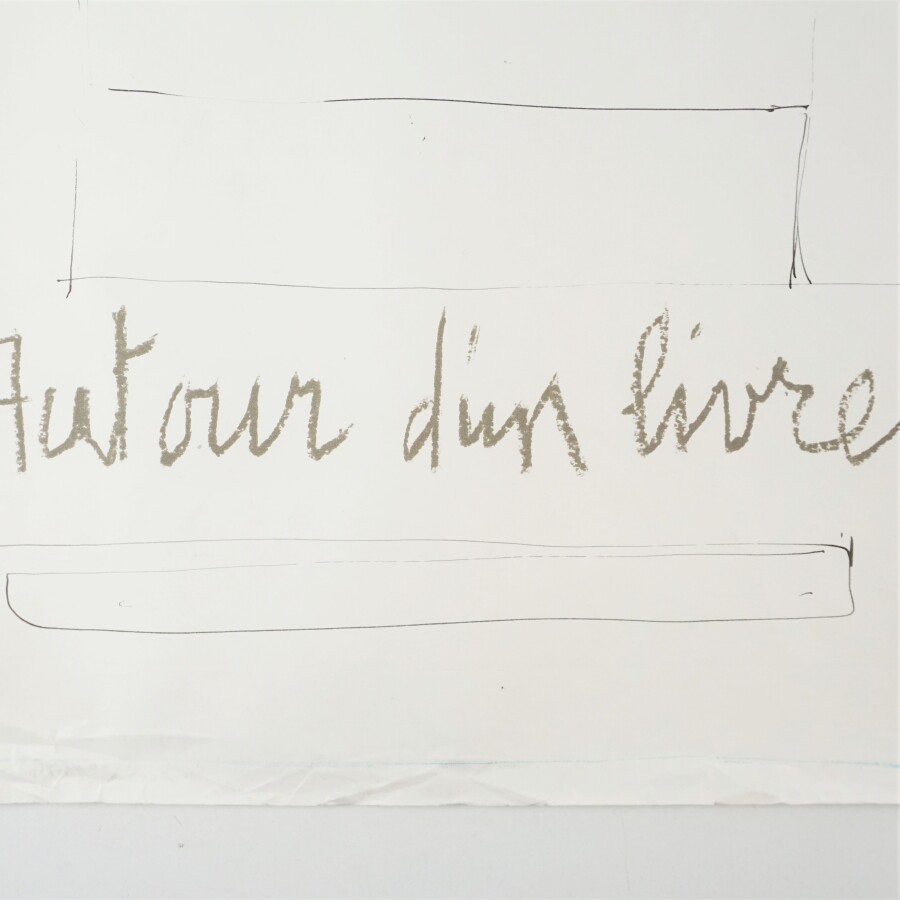 Autour d'un livre